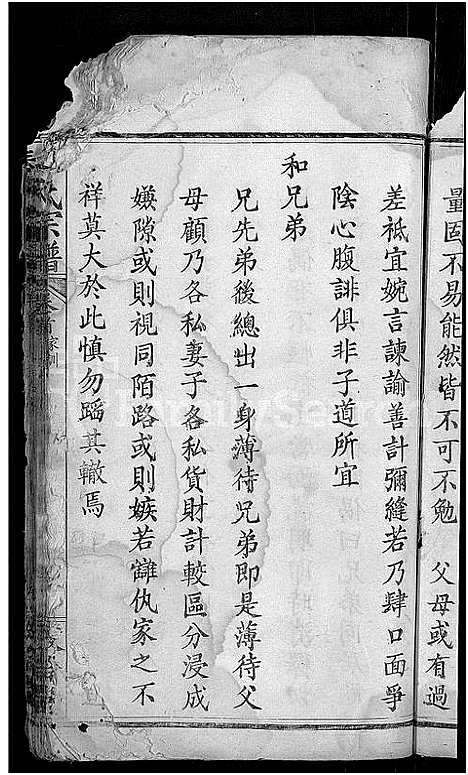 量固不易能然皆不可不勉　父母或有過
差祗宜婉言諫諭善計彌縫若乃肆口面爭
陰心腹誹俱非子道所宜
和兄弟
兄先弟後總出一身薄待兄弟即是薄待父
母顧乃各私妻子各私貨財計較區分浸成
嫌隙或則視同陌路或則嫉若讎仇家之不
祥莫大於此慎勿蹈其轍焉
氏宗譜
卷首家訓